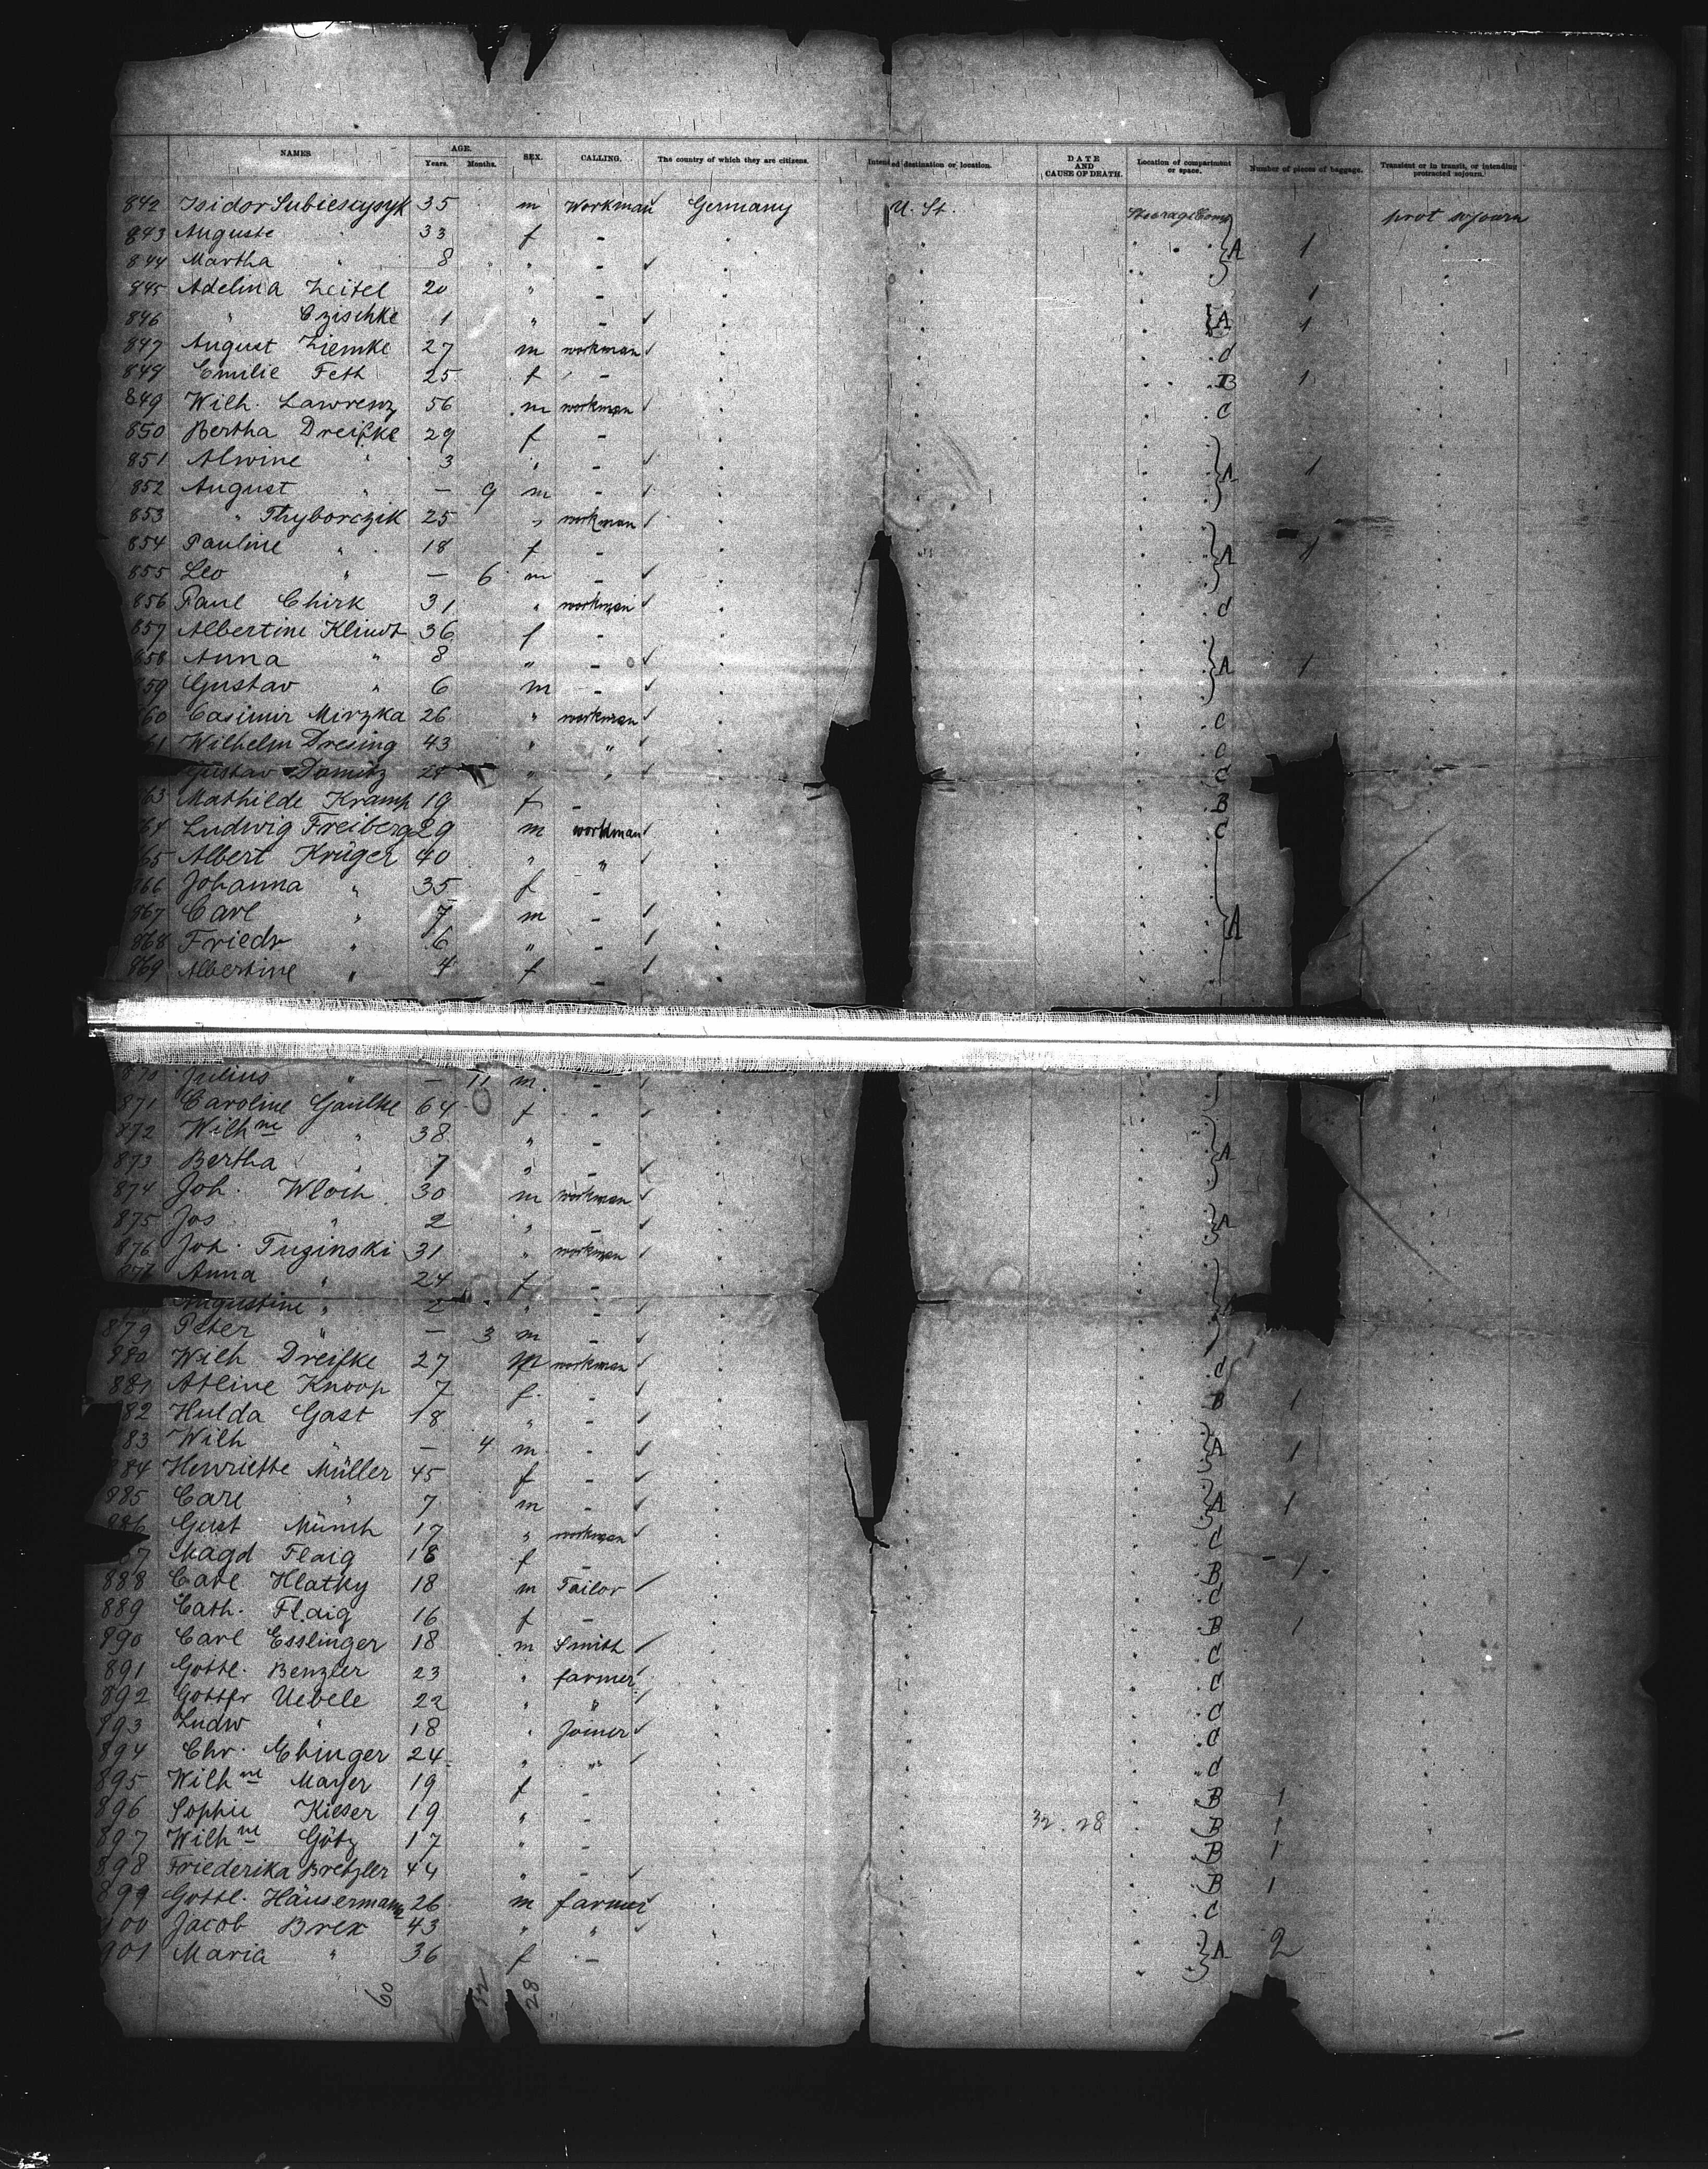 NAMES AGE. Years. Months. SEX. CALLING. The country of which they are citizens. Intended destination or location. DATE AND CAUSE OF DEATH. Location of compartment or space. Number of pieces of baggage. Transient or in transit, or intending protracted sojourn.
842 Isidor 35 m Workman Germany U. St. prot sojourn
843 Auguste " 33 f - A 1
844 Martha " 8 " -
845 Adelina Zeitel 20 " - 1
846 " Czischke 1 " - A 1
847 August Ziemke 27 m workman d
848 Emilie Feth 25 f - B 1
849 Wilh. Lawrenz 56 m workman C
850 Bertha Dreifke 29 f -
851 Alwine " 3 " - A 1
852 August " - 9 m -
853 " Thyborczik 25 " workman
854 Pauline " 18 f - A 1
855 Leo " - 6 m -
856 Paul Chirk 31 " workman d
857 Albertine Klindt 36 f -
858 Anna " 8 " - A 1
859 Gustav " 6 m -
60 Casimir Mirzka 26 " workman C
61 Wilhelm Dresing 43 " " C
Gustav Damitz 24 " " C
63 Mathilde Kramp 19 f - B
64 Ludwig Freiberg 29 m workman C
65 Albert Krüger 40 " "
866 Johanna " 35 f -
867 Carl " 7 m - A
868 Friedr " 6 " -
869 Albertine " 4 f -
870 Julius " - 11 m -
871 Caroline Gaulke 64 f -
872 Wilhne " 38 " - A
873 Bertha " 7 " -
874 Joh. Wloch 30 m workman
875 Jos " 2 " - A
876 Joh. Tuginski 31 " workman
877 Anna " 24 f -
Augustine " 2 " -
879 Peter " - 3 m -
880 Wilh Dreifke 27 m workman d
881 Atline Knoop 7 f - B 1
82 Hulda Gast 18 " -
83 Wilh " - 4 m - A 1
884 Henriette Müller 45 f -
885 Carl " 7 m - A 1
886 Gust Münch 17 " workman d
87 Magd Flaig 18 f - B 1
888 Carl Hlatky 18 m Tailor C
889 Cath. Flaig 16 f - B 1
890 Carl Esslinger 18 m Smith C
891 Gottl. Benzler 23 " farmer C
892 Gottfr Uebele 22 " " C
893 Ludw " 18 " Joiner C
894 Chr. Ehinger 24 " " d
895 Wilhne Mayer 19 f - B 1
896 Sophie Kieser 19 " - 32.28 B 1
897 Wilhne Götz 17 " - B 1
898 Friederika Bretzler 44 " - B 1
899 Gottl. Häusermann 26 m farmer C
900 Jacob Brex 43 " "
901 Maria " 36 f - A 2
60 32 28